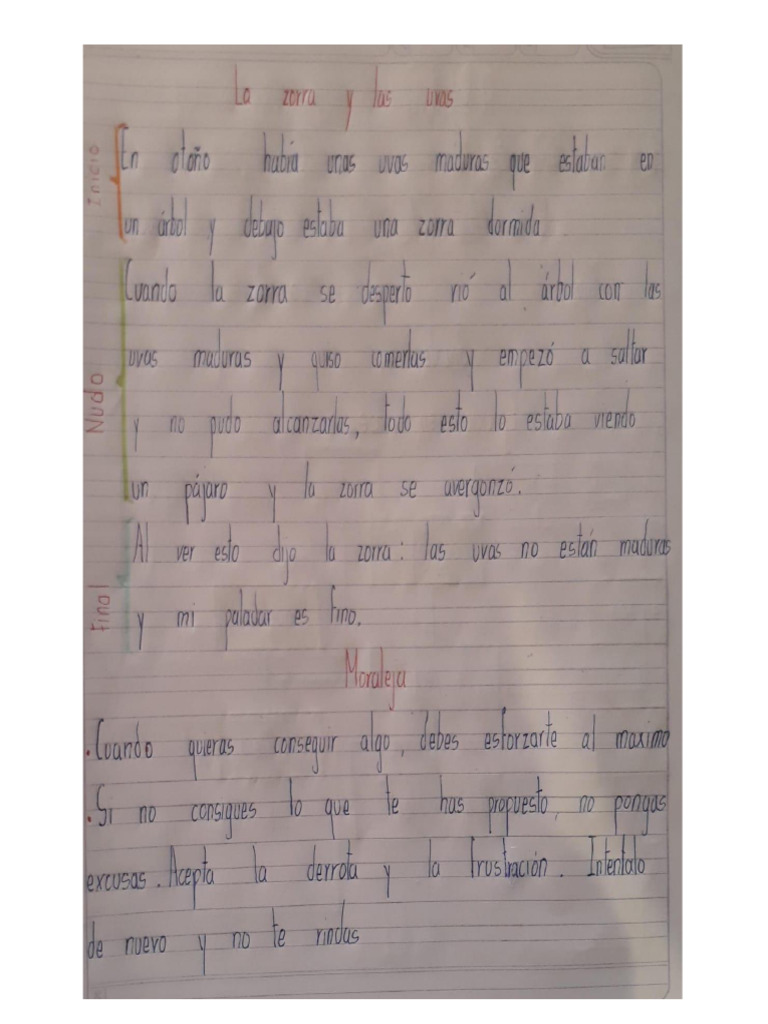 La zorra y las uvas
Inicio
En otoño había unas uvas maduras que estaban en
un árbol y debajo estaba una zorra dormida
Nudo
Cuando la zorra se desperto vió al árbol con las
uvas maduras y quiso comerlas y empezó a saltar
y no pudo alcanzarlas, todo esto lo estaba viendo
un pájaro y la zorra se avergonzó.
Final
Al ver esto dijo la zorra: las uvas no están maduras
y mi paladar es fino.
Moraleja
.Cuando quieras conseguir algo, debes esforzarte al maximo
.Si no consigues lo que te has propuesto, no pongas
excusas. Acepta la derrota y la frustración. Intentalo
de nuevo y no te rindas